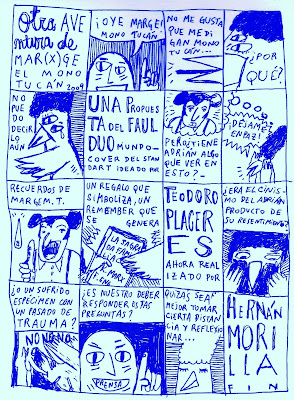 OTRA AVE
NTURA DE
MAR(X)GE
EL MONO
TUCÁN 2009
¡OYE MARGE!
MONO TUCÁN
NO ME GUSTA
QUE ME DI
GAN MONO
TUCÁN...
¿POR
QUÉ?
NO
PUE
DO
DECIR
LO
AÚN
UNA PROPUES
TA DEL FAUL
DUO MUNDO-
COVER DEL STAN
DART IDEADO POR
PERO ¿TIENE
ADRIÁN ALGO
QUE VER EN
ESTO?-
¡DEJAME
EN PAZ!
RECUERDOS DE
MARGE M.T.
UN REGALO QUE
SIMBOLIZA, UN
REMEMBER QUE
SE GENERA
LA SAGRA
DA
TEODORO
PLACER
ES
AHORA REAL
IZADO POR
¿ERA EL CINIS-
MO DEL ADRIÁN
PRODUCTO DE
SU RESENTIMIENTO?
¿O UN SUFRIDO
ESPÉCIMEN CON
UN PASADO DE
TRAUMA?
NO NO NO
¿ES NUESTRO DEBER
RESPONDER ESTAS
PREGUNTAS?
PRENSA
QUIZÁS SEA
MEJOR TOMAR
CIERTA DISTAN
CIA Y REFLEXIO
NAR...
HERNÁN
MORI
LLA
FIN